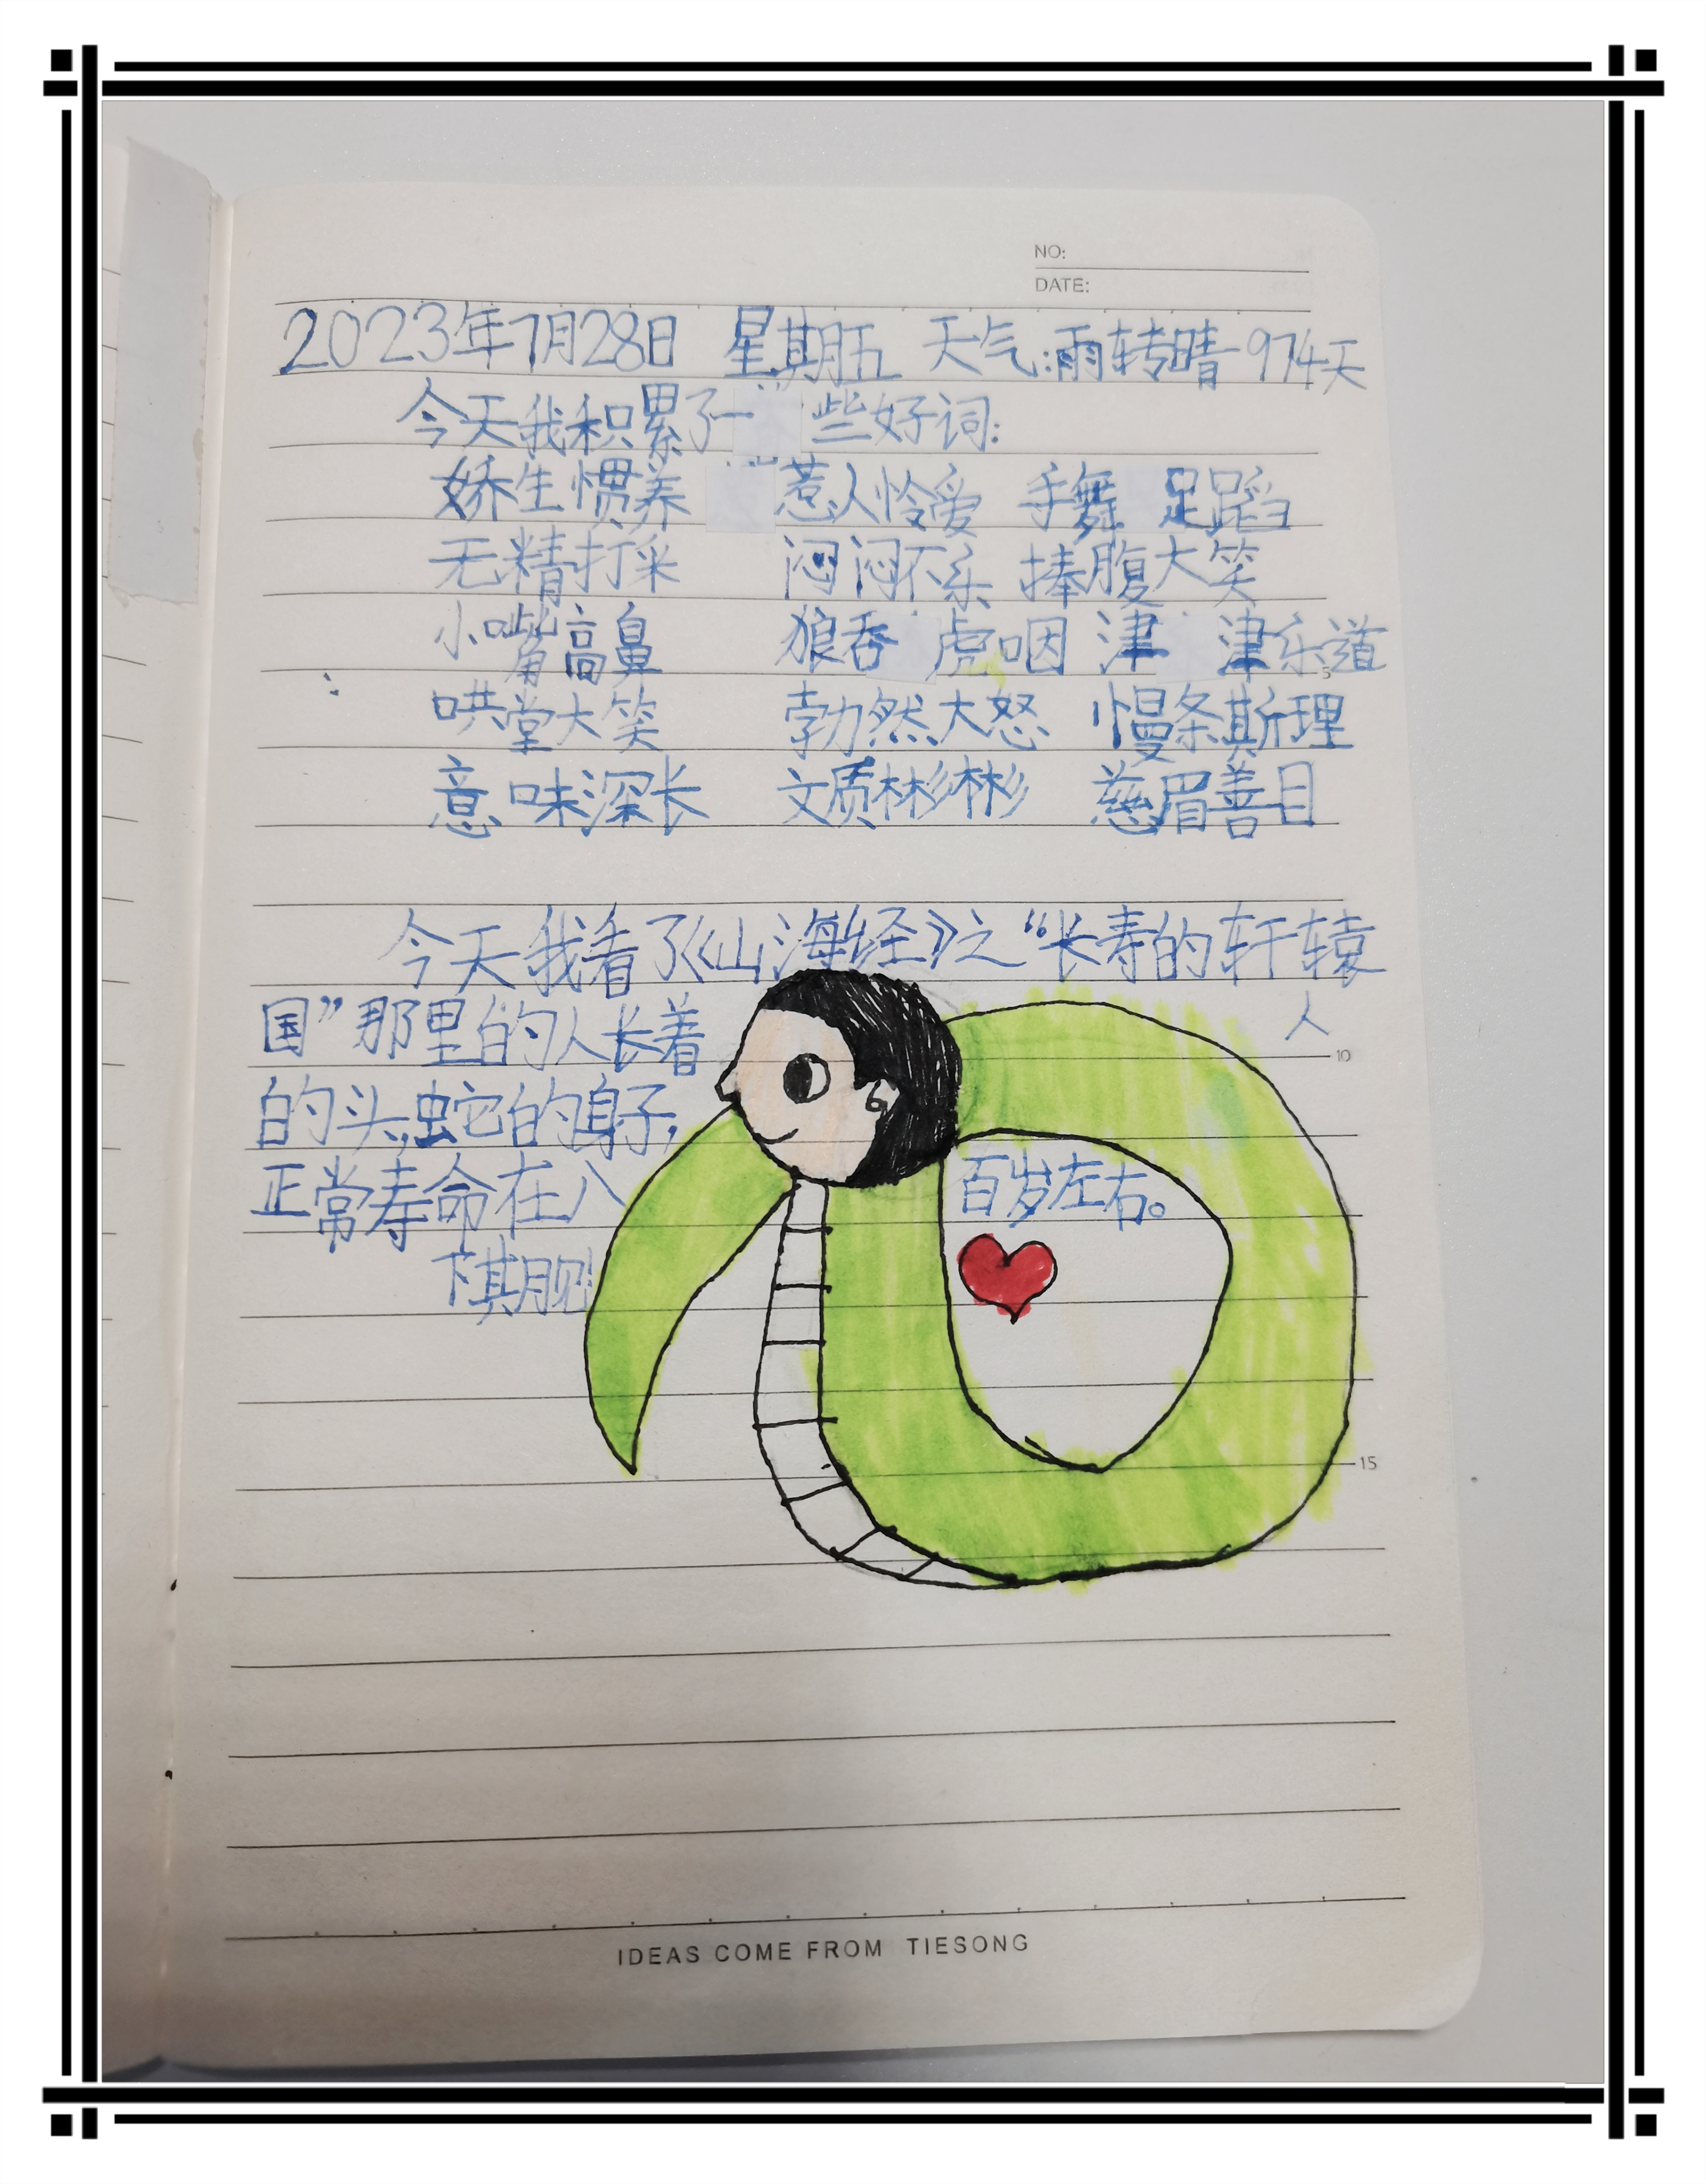 NO:
DATE:
2023年7月28日 星期五 天气:雨转晴 974天
今天我积累了一些好词:
娇生惯养 惹人怜爱 手舞足蹈
无精打采 闷闷不乐 捧腹大笑
小嘴高鼻 狼吞虎咽 津津乐道
5
哄堂大笑 勃然大怒 慢条斯理
意味深长 文质彬彬 慈眉善目
今天我看了《山海经》之“长寿的轩辕
国”那里的人长着 人
10
的头,蛇的身子,
正常寿命在八百岁左右。
下期见!
15
IDEAS COME FROM TIESONG